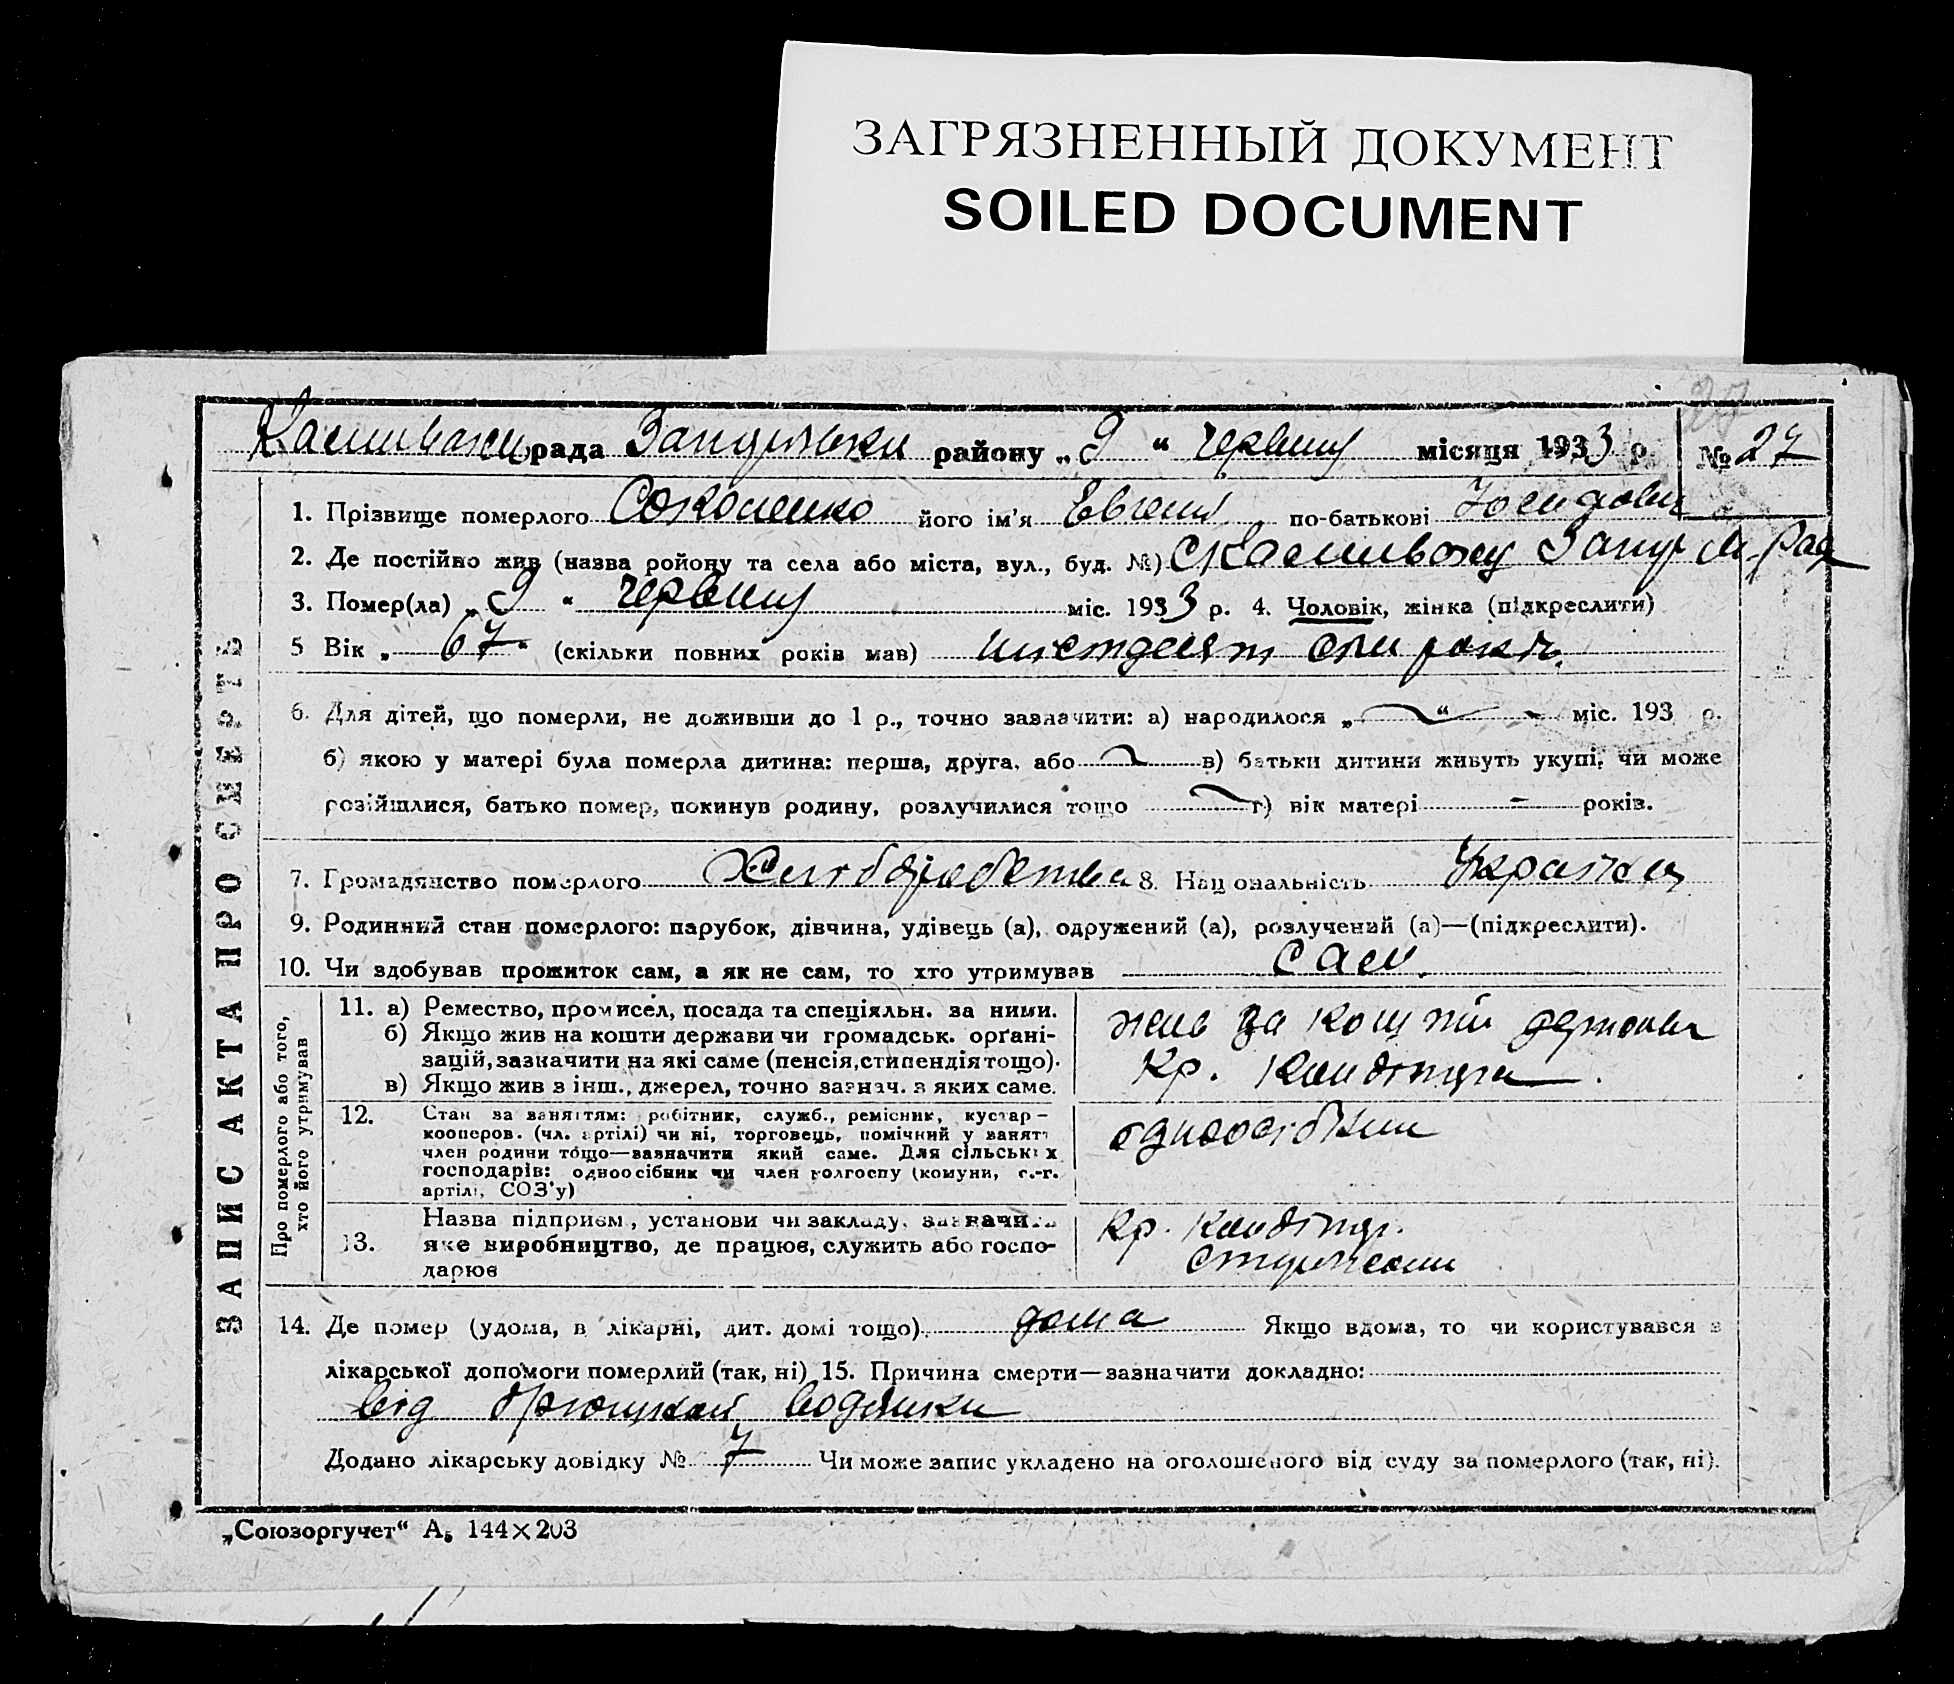 ЗАГРЯЗНЕННЫЙ ДОКУМЕНТ
SOILED DOCUMENT
27
рада району „9“ червня місяця 1933 р. № 27
1. Прізвище померлого його ім'я Евгени по-батькові
2. Де постійно жив (назва ройону та села або міста, вул., буд. №)
3. Помер(ла) „9“ червня міс. 1933 р. 4. Чоловік, жінка (підкреслити)
5 Вік „67“ (скільки повних років мав) шістдесят сім років.
6. Для дітей, що померли, не доживши до 1 р., точно зазначити: а) народилося „ “ міс. 193 р.
б) якою у матері була померла дитина: перша, друга, або в) батьки дитини живуть укупі, чи може
розійшлися, батько помер, покинув родину, розлучилися тощо г) вік матері - років.
7. Громадянство померлого 8. Національність
9. Родинний стан померлого: парубок, дівчина, удівець (а), одружений (а), розлучений (а)—(підкреслити).
10. Чи здобував прожиток сам, а як не сам, то хто утримував сам.
ЗАПИС АКТА ПРО СМЕРТЬ
Про померлого або того, хто його утримував
11. а) Ремество, промисел, посада та спеціяльн. за ними.
б) Якщо жив на кошти держави чи громадськ. органі-
зацій, зазначити на які саме (пенсія, стипендія тощо).
в) Якщо жив з інш., джерел, точно зазнач. з яких саме.
жив за кошти держави
Кр.
12. Стан за заняттям: робітник, служб., ремісник, кустар-
кооперов. (чл. артілі) чи ні, торговець, помічний у занятт
член родини тощо—зазначити який саме. Для сільських
господарів: одноосібник чи член колгоспу (комуни, с.-г.
артілі, СОЗ'у)
одноосібник
13. Назва підприєм., установи чи закладу, зазначити
яке виробництво, де працює, служить або госпо-
дарює
Кр.
14. Де помер (удома, в лікарні, дит. домі тощо) дома Якщо вдома, то чи користувався з
лікарської допомоги померлий (так, ні) 15. Причина смерти—зазначити докладно:
від водянки
Додано лікарську довідку № 7 Чи може запис укладено на оголошеного від суду за померлого (так, ні).
„Союзоргучет“ А₅ 144×203